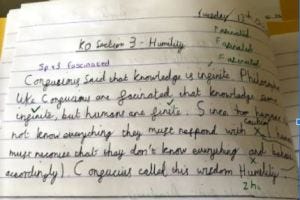 Tuesday 13th
KO Section 3 - Humility
Fascinated
Fascinated
Fascinated
Sp x3 fascinated
Congucious said that knowledge is infinite. Philosophers
like Congucious are facinated that knowledge seems
infinite, but humans are finite. Since humans
not know everything they must respond with caution X (
must reconise that they don't know everything and
accordingly) Congucies called this wisdom Humility